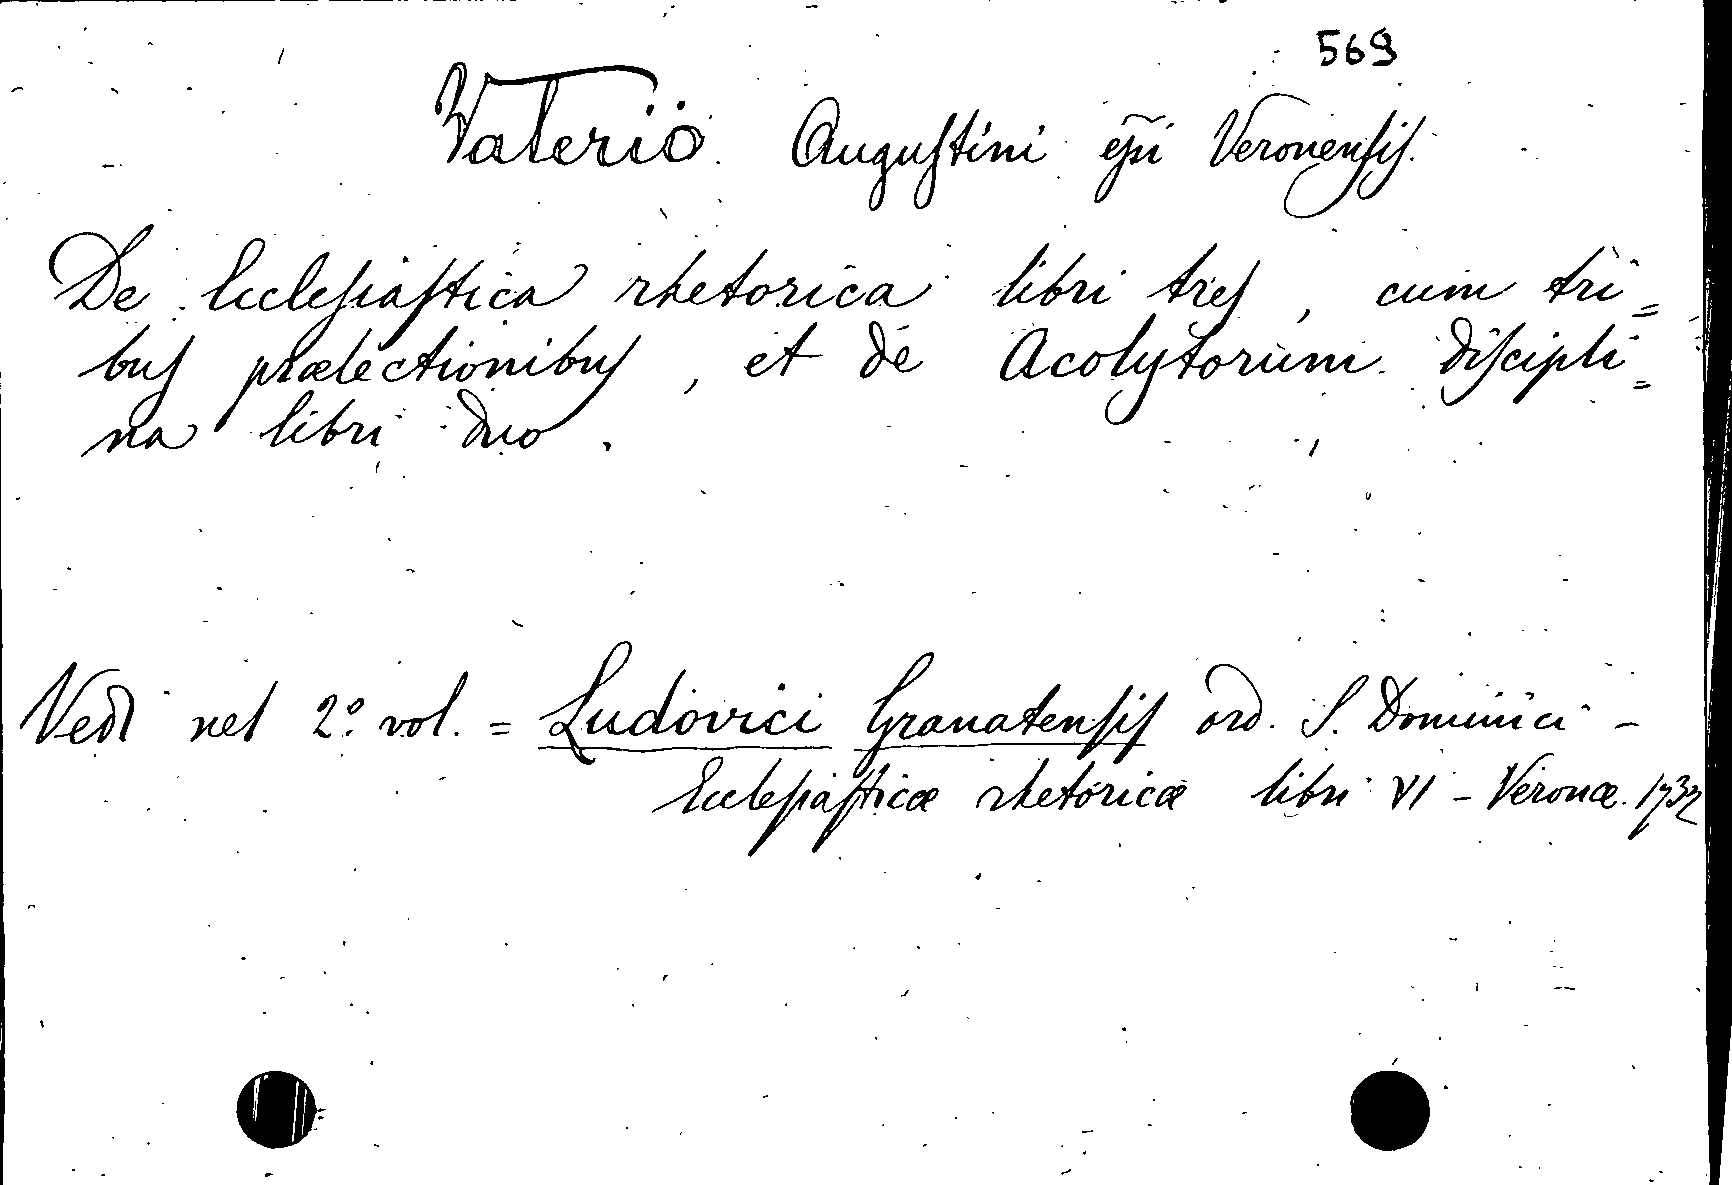 569
Valerio Auguſtini epĩ Veronenſiſ.
De Eccleſiaſtica rhetorica libri treſ, cum tri=
buſ prælectionibuſ, et de Acolytorum diſcipli=
na libri duo.
Vedi nel 2.º vol. = Ludovici Granatenſiſ ord. S. Dominici -
Eccleſiaſticæ rhetoricæ libri VI - Veronæ. 1732